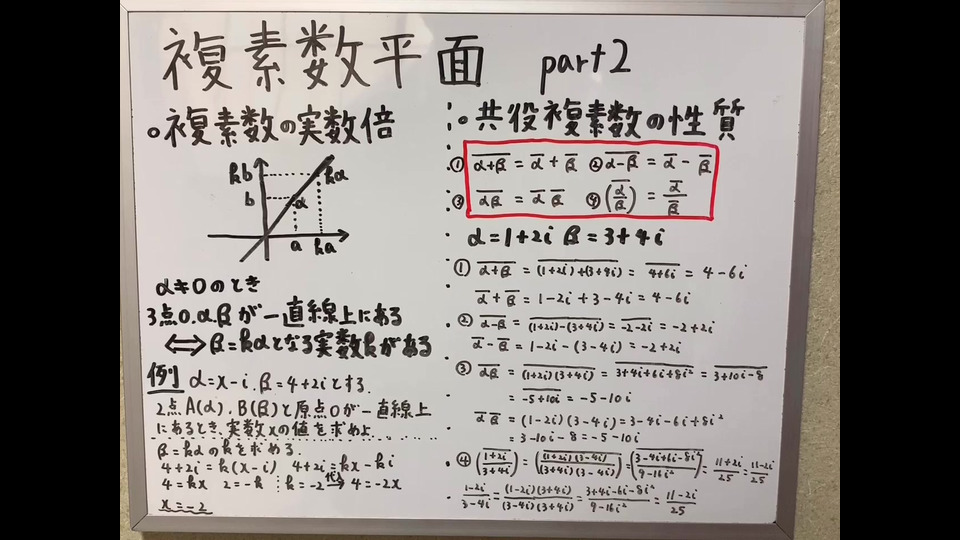 複素数平面 part2
○複素数の実数倍
kb
kα
b
α
a
ka
α≠0のとき
3点0.α.βが一直線上にある
⇔ β=kαとなる実数kがある
例 α=x-i.β=4+2iとする.
2点A(α).B(β)と原点Oが一直線上
にあるとき、実数xの値を求めよ
β=kαのkを求める.
4+2i=k(x-i) 4+2i=kx-ki
4=kx 2=-k k=-2 代入→ 4=-2x
x=-2
○共役複素数の性質
① \overline{α+β} = \overline{α} + \overline{β} ② \overline{α-β} = \overline{α} - \overline{β}
③ \overline{αβ} = \overline{α} \overline{β} ④ \overline{(α/β)} = \overline{α}/\overline{β}
α=1+2i β=3+4i
① \overline{α+β} = \overline{(1+2i)+(3+4i)} = \overline{4+6i} = 4-6i
\overline{α}+\overline{β} = 1-2i+3-4i = 4-6i
② \overline{α-β} = \overline{(1+2i)-(3+4i)} = \overline{-2-2i} = -2+2i
\overline{α}-\overline{β} = 1-2i-(3-4i) = -2+2i
③ \overline{αβ} = \overline{(1+2i)(3+4i)} = \overline{3+4i+6i+8i²} = \overline{3+10i-8}
= \overline{-5+10i} = -5-10i
\overline{α}\overline{β} = (1-2i)(3-4i) = 3-4i-6i+8i²
= 3-10i-8 = -5-10i
④ \overline{(1+2i/3+4i)} = \overline{((1+2i)(3-4i)/(3+4i)(3-4i))} = \overline{(3-4i+6i-8i²/9-16i²)} = \overline{11+2i/25} = 11-2i/25
1-2i/3-4i = (1-2i)(3+4i)/(3-4i)(3+4i) = 3+4i-6i-8i²/9-16i² = 11-2i/25